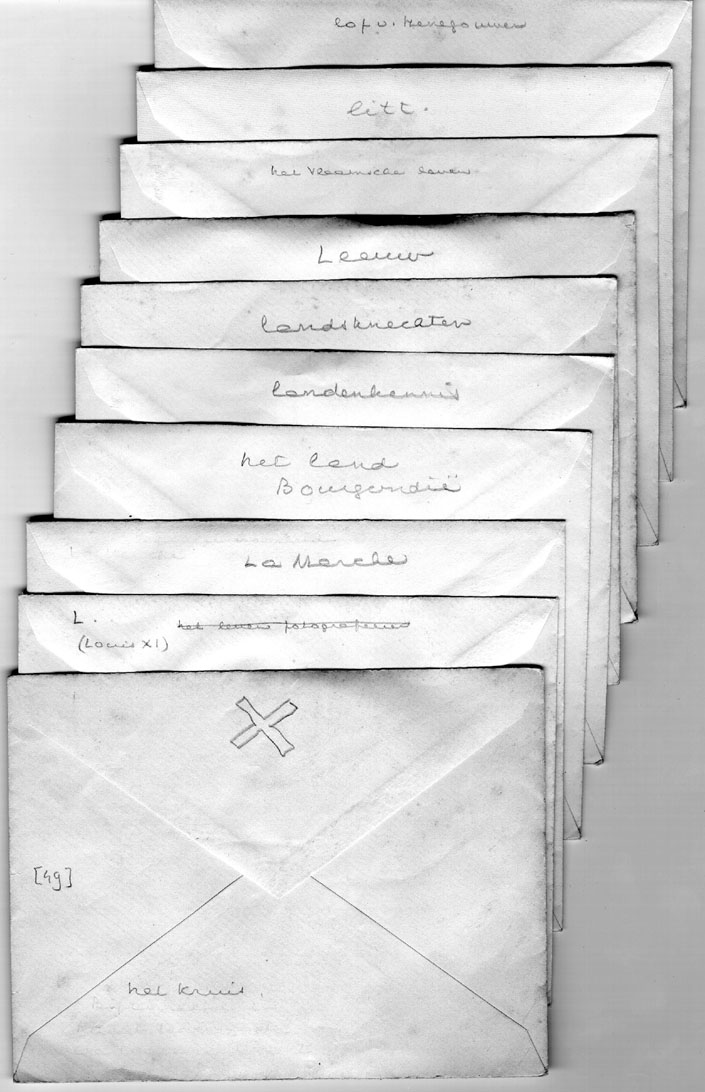 Lof v. Henegouwen
litt.
het Vlaamsche leven
Leeuw
Landsknechten
Landenkennis
het land
Bourgondië
La Marche
L.
het leven fotograferen
(Louis XI)
[49]
het kruis